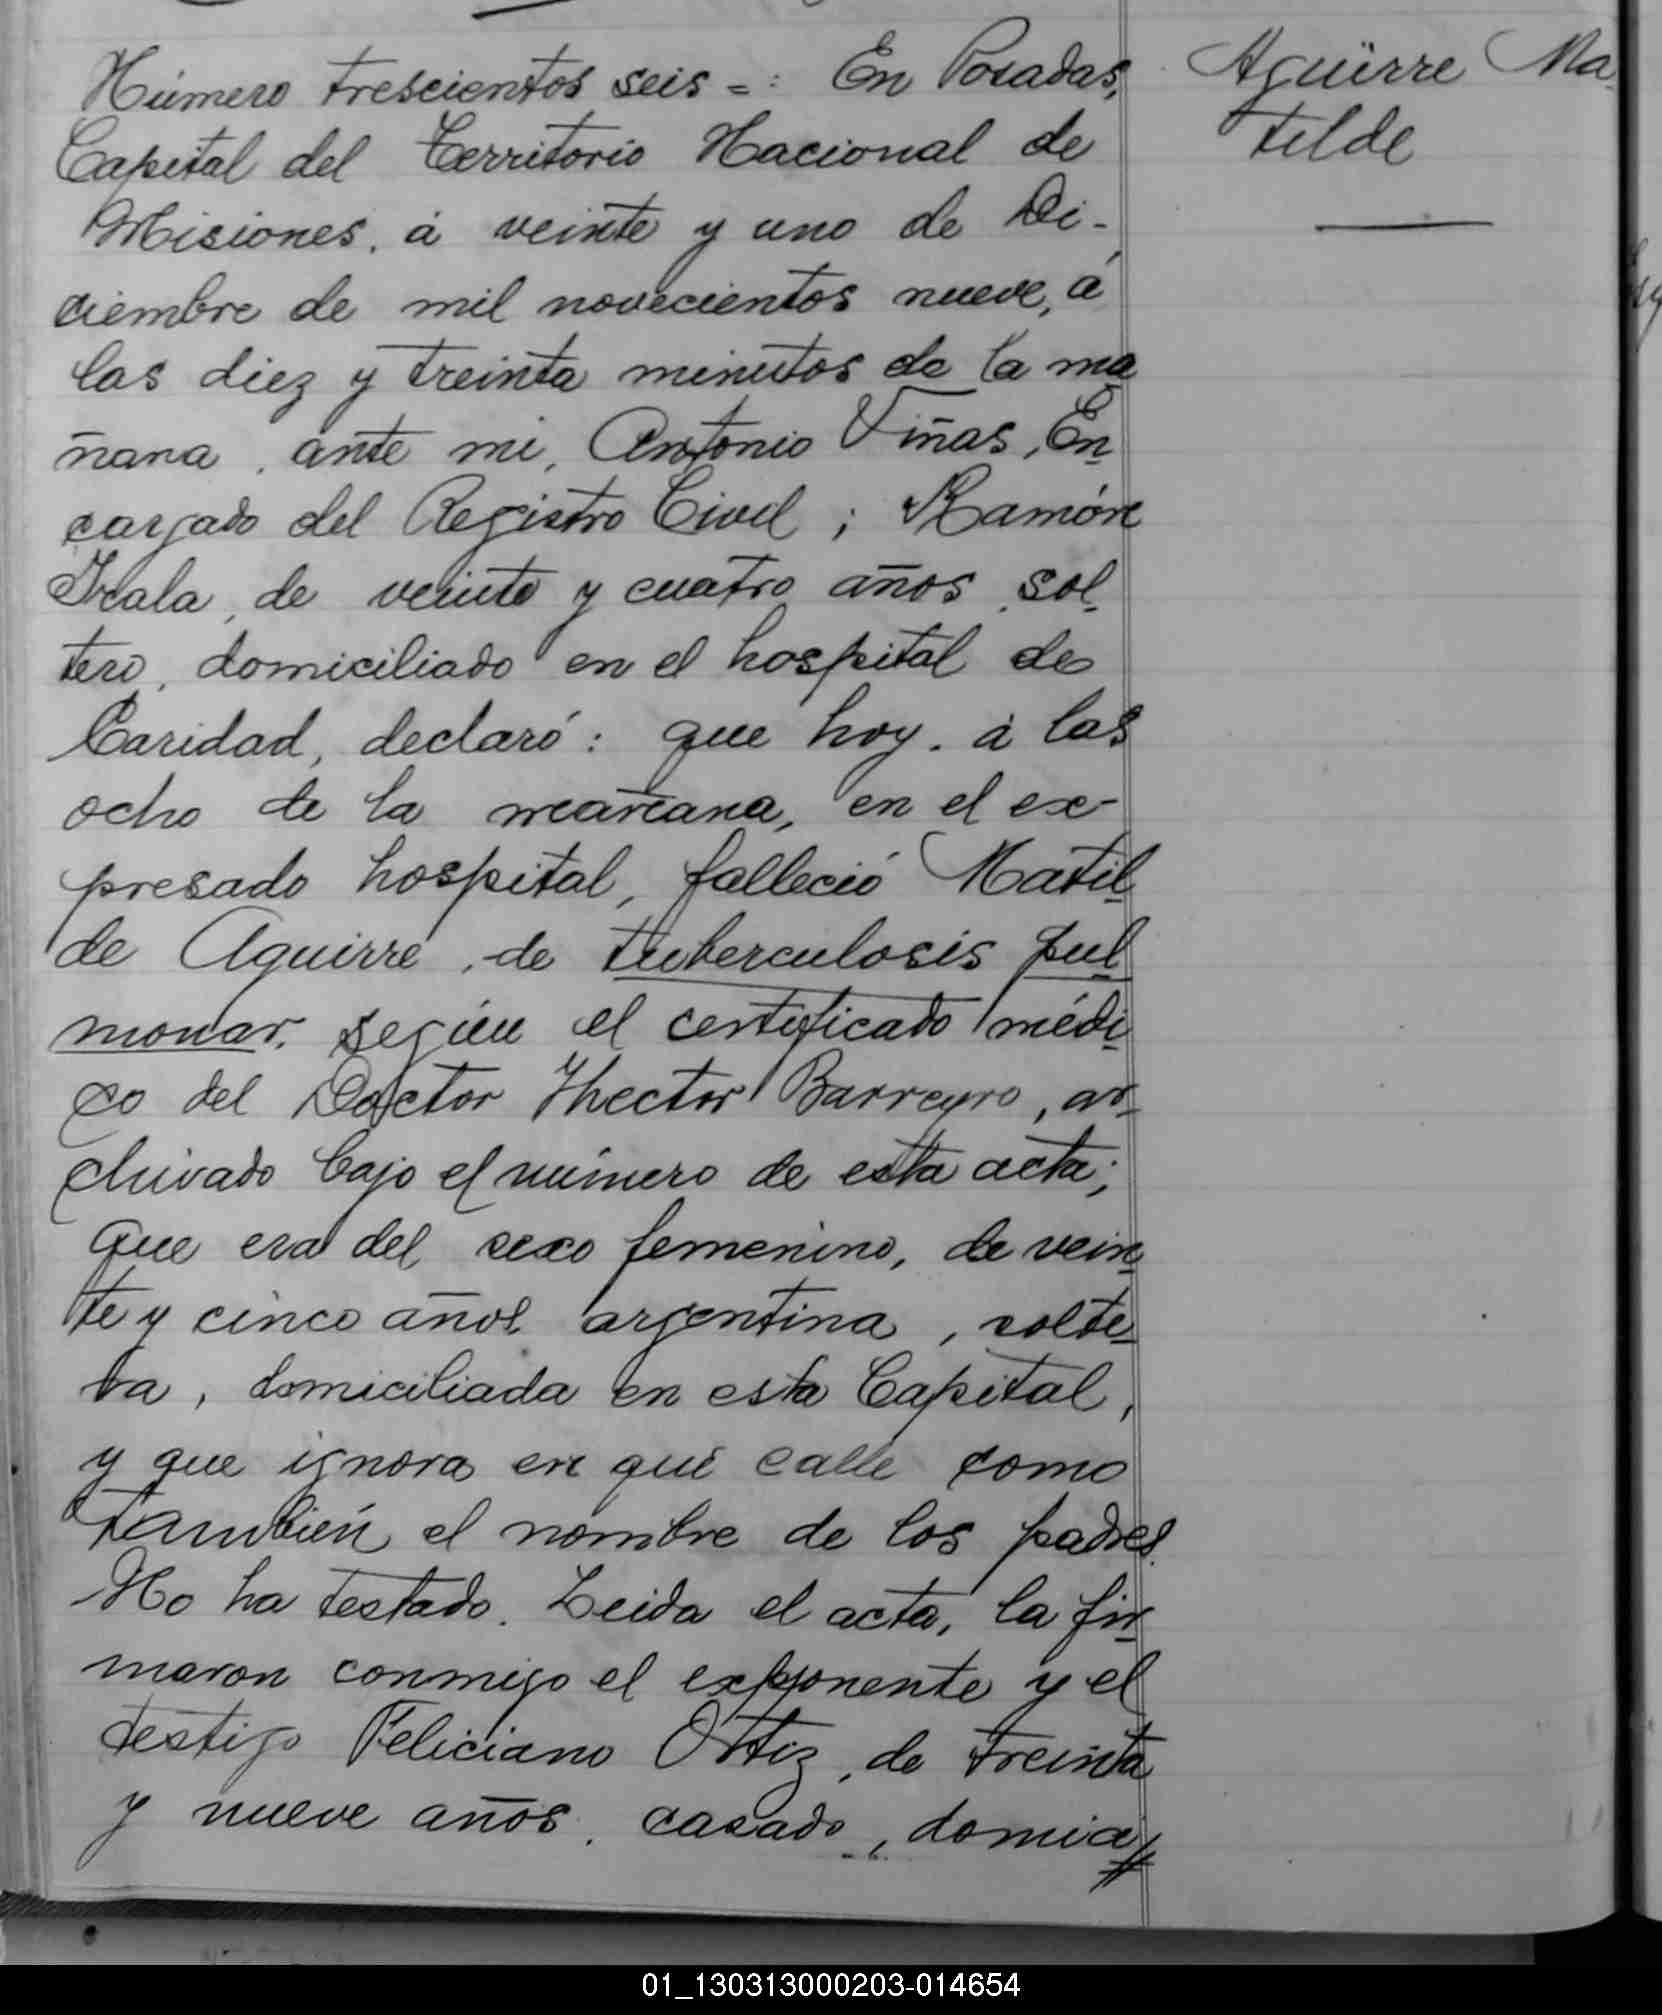 Número trescientos seis =: En Posadas,
Capital del Territorio Nacional de
Misiones, á veinte y uno de Di-
ciembre de mil novecientos nueve, á
las diez y treinta minutos de la ma
ñana, ante mi, Antonio Viñas, En
cargado del Registro Civil; Ramón
Irala, de veinte y cuatro años, sol
tero, domiciliado en el hospital de
Caridad, declaró: que hoy, á las
ocho de la mañana, en el ex-
presado hospital, falleció Matil
de Aguirre, de tuberculosis pul
monar, según el certificado médi
co del Doctor Hector Barreyro, ar
chivado bajo el número de esta acta;
que era del sexo femenino, de vein
te y cinco años, argentina, solte
ra, domiciliada en esta Capital,
y que ignora en qué calle como
también el nombre de los padres.
No ha testado. Leida el acta, la fir
maron conmigo el exponente y el
testigo Feliciano Ortiz, de treinta
y nueve años, casado, domici//
Aguirre Ma
tilde
01_130313000203-014654